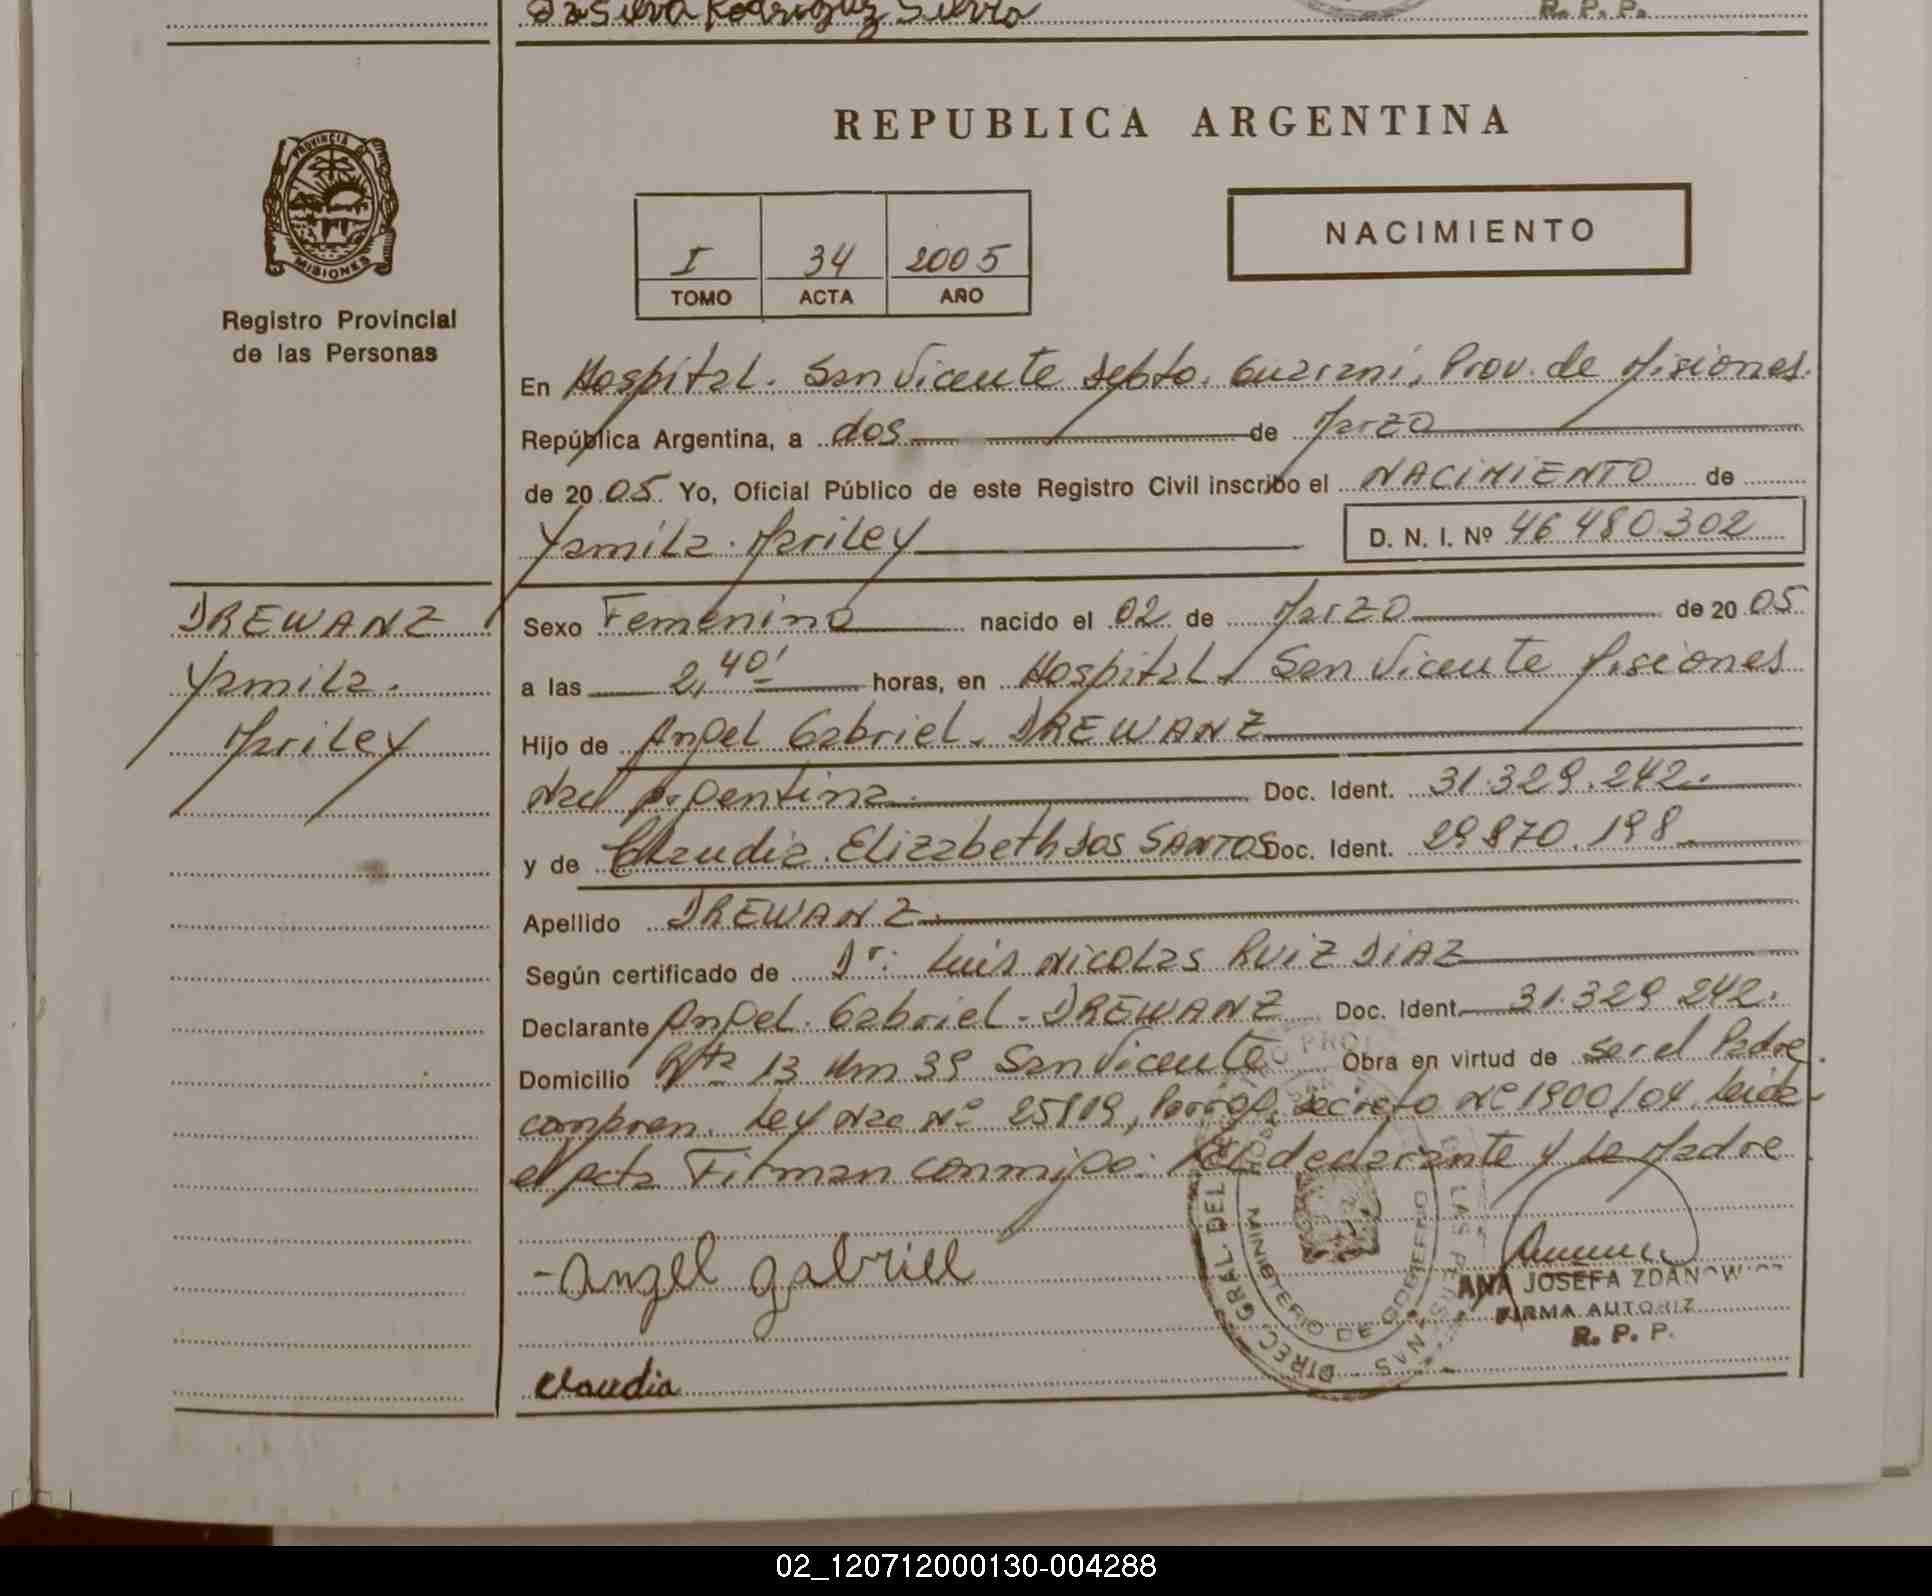 Da Silva Rodriguez Silvia
R. P. P.
REPUBLICA ARGENTINA
PROVINCIA D
MISIONES
Registro Provincial
de las Personas
I 34 2005
TOMO ACTA AÑO
NACIMIENTO
En Hospital. San Vicente Depto. Guarani, Prov. de Misiones.
República Argentina, a dos de Marzo
de 20 05. Yo, Oficial Público de este Registro Civil inscribo el NACIMIENTO de
Yamila. Mariley D. N. I. Nº 46480302
DREWANZ
Yamila.
Mariley
Sexo Femenino nacido el 02 de Marzo de 20 05
a las 2,40' horas, en Hospital San Vicente Misiones
Hijo de Angel Gabriel. DREWANZ
Nac Argentina. Doc. Ident. 31.329.242.
y de Claudia. Elizabeth DOS SANTOS Doc. Ident. 29870.198
Apellido DREWANZ.
Según certificado de Dr: Luis Nicolas RUIZ DIAZ
Declarante Angel. Gabriel - DREWANZ Doc. Ident. 31.329 242.
Domicilio Rta 13 Km 39 San Vicente Obra en virtud de ser el Padre.
compren. Ley Nac Nº 25819, Prorrog. Decreto Nº 1900/04 Leida
el Acta Firman conmigo: El declarante y La Madre
- angel gabriel
claudia
DIREC. GRAL. DEL LAS PERSONAS
MINISTERIO DE GOBIERNO
ANA JOSEFA ZDANOWICZ
FIRMA AUTORIZ
R. P. P.
02_120712000130-004288